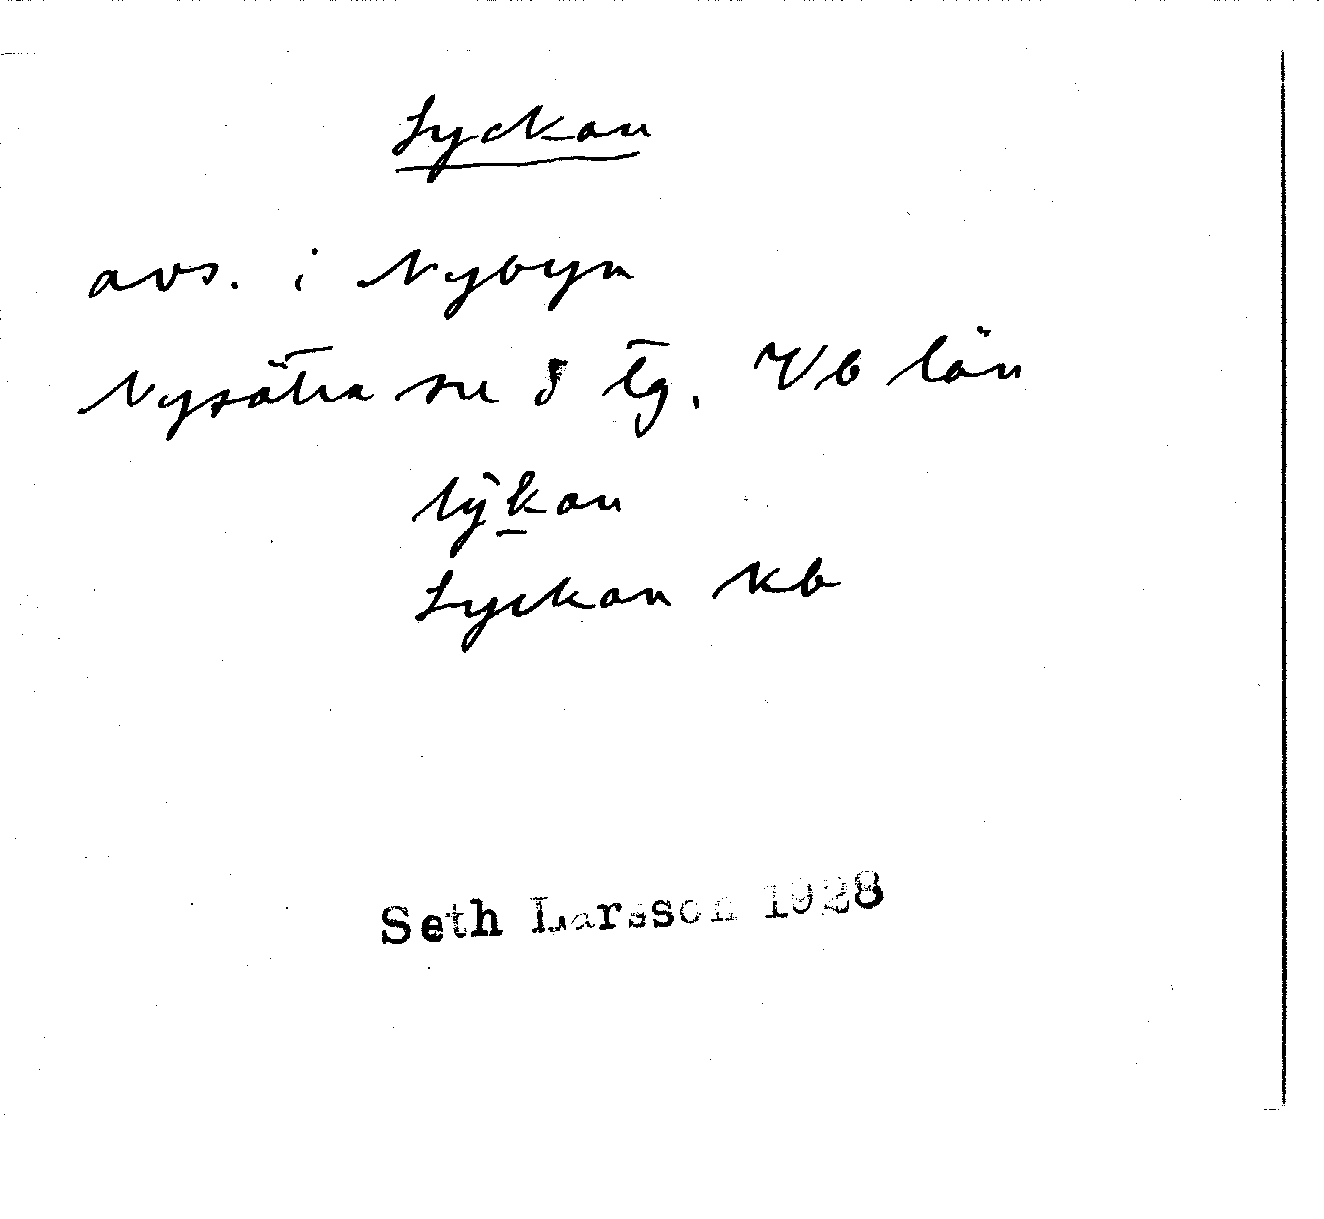 Lyckan
avs. i Nybyn
Nysätra sn 8 tg. Vb län
lýkan
Lyckan kb
Seth Larsson 1928